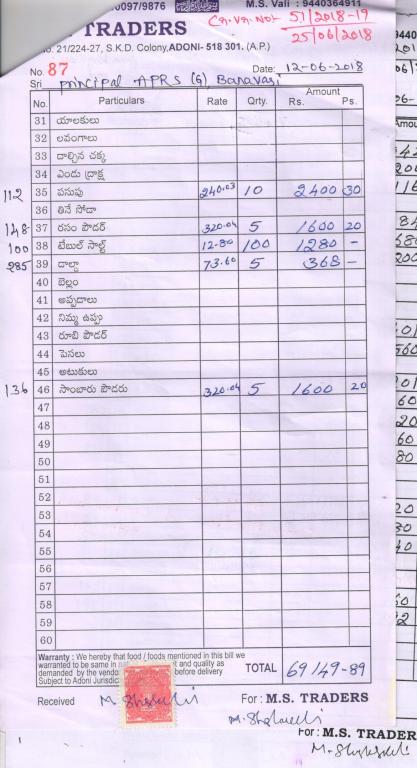 0097/9876 M.S. Vali : 9440364911
TRADERS
C.B.V.R. No: 51/2018-19
25/06/2018
No. 21/224-27, S.K.D. Colony, ADONI- 518 301. (A.P.)
No. 87 Date: 12-06-2018
Sri Principal APRS (G) Banavasi
No. Particulars Rate Qrty. Amount Rs. Ps.
31 యాలకులు
32 లవంగాలు
33 దాల్చిన చక్క
34 ఎండు ద్రాక్ష
112 35 పసుపు 240.03 10 2400 30
36 తినే సోడా
148 37 రసం పౌడర్ 320.04 5 1600 20
100 38 టేబుల్ సాల్ట్ 12-80 100 1280 -
285 39 దాల్డా 73.60 5 368 -
40 బెల్లం
41 అప్పడాలు
42 నిమ్మ ఉప్పు
43 రూబి పౌడర్
44 పెసలు
45 అటుకులు
136 46 సాంబారు పౌడరు 320.04 5 1600 20
47
48
49
50
51
52
53
54
55
56
57
58
59
60
Warranty : We hereby that food / foods mentioned in this bill we
warranted to be same in and quality as
demanded by the vendo before delivery
Subject to Adoni Jurisdic
TOTAL 69149-89
Received For : M.S. TRADERS
For : M.S. TRADERS